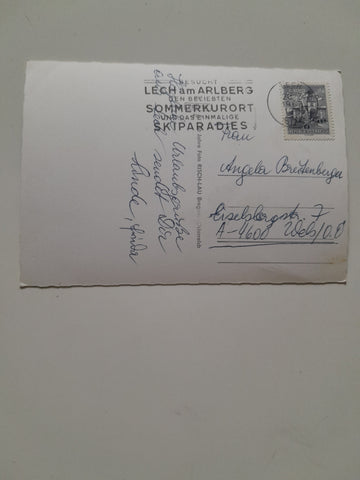 BESUCHT
LECH am ARLBERG
DEN BELIEBTEN
SOMMERKURORT
UND DAS EINMALIGE
SKIPARADIES
Frau
Angela Breitenberger
Eiselsbergstr. 7
A-4600 Wels/O.Ö
Urlaubsgrüße
sendet Dir
Foto RISCH-LAU